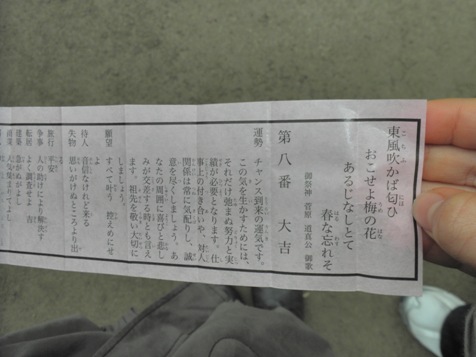 東風吹かば匂ひ
おこせよ梅の花
あるじなしとて
春な忘れそ
御祭神 菅原 道真公 御歌
第八番 大吉
運勢 チャンス到来の運気です。
この気を生かすためには、
それだけ弛まぬ努力と実
績が必要となります。仕
事上の付き合いや、対人
関係は常に気配りし、誠
意を尽くしましょう。あ
なたの周囲に喜びと悲し
みが交差する時とも言え
ます。祖先を敬い大切に
しましょう。
願望 すべて叶う 控えめにせ
よ
待人 音信なけれど来る
失物 思いがけぬところより出
旅行 平安
争事 人の助けにより解決す
転居
建築 急がぬがよし